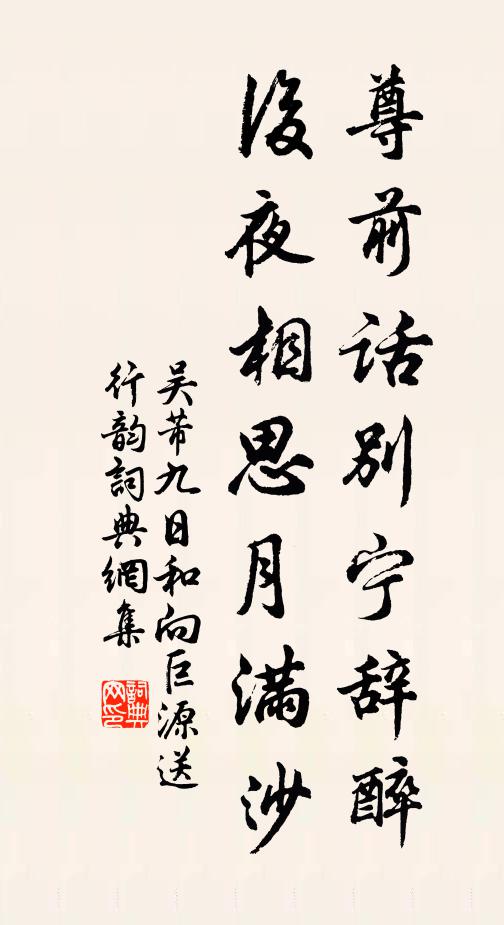 尊前话别宁辞醉
后夜相思月满沙
吴芾九日和向巨源送
行韵词典網集
詞典
网印